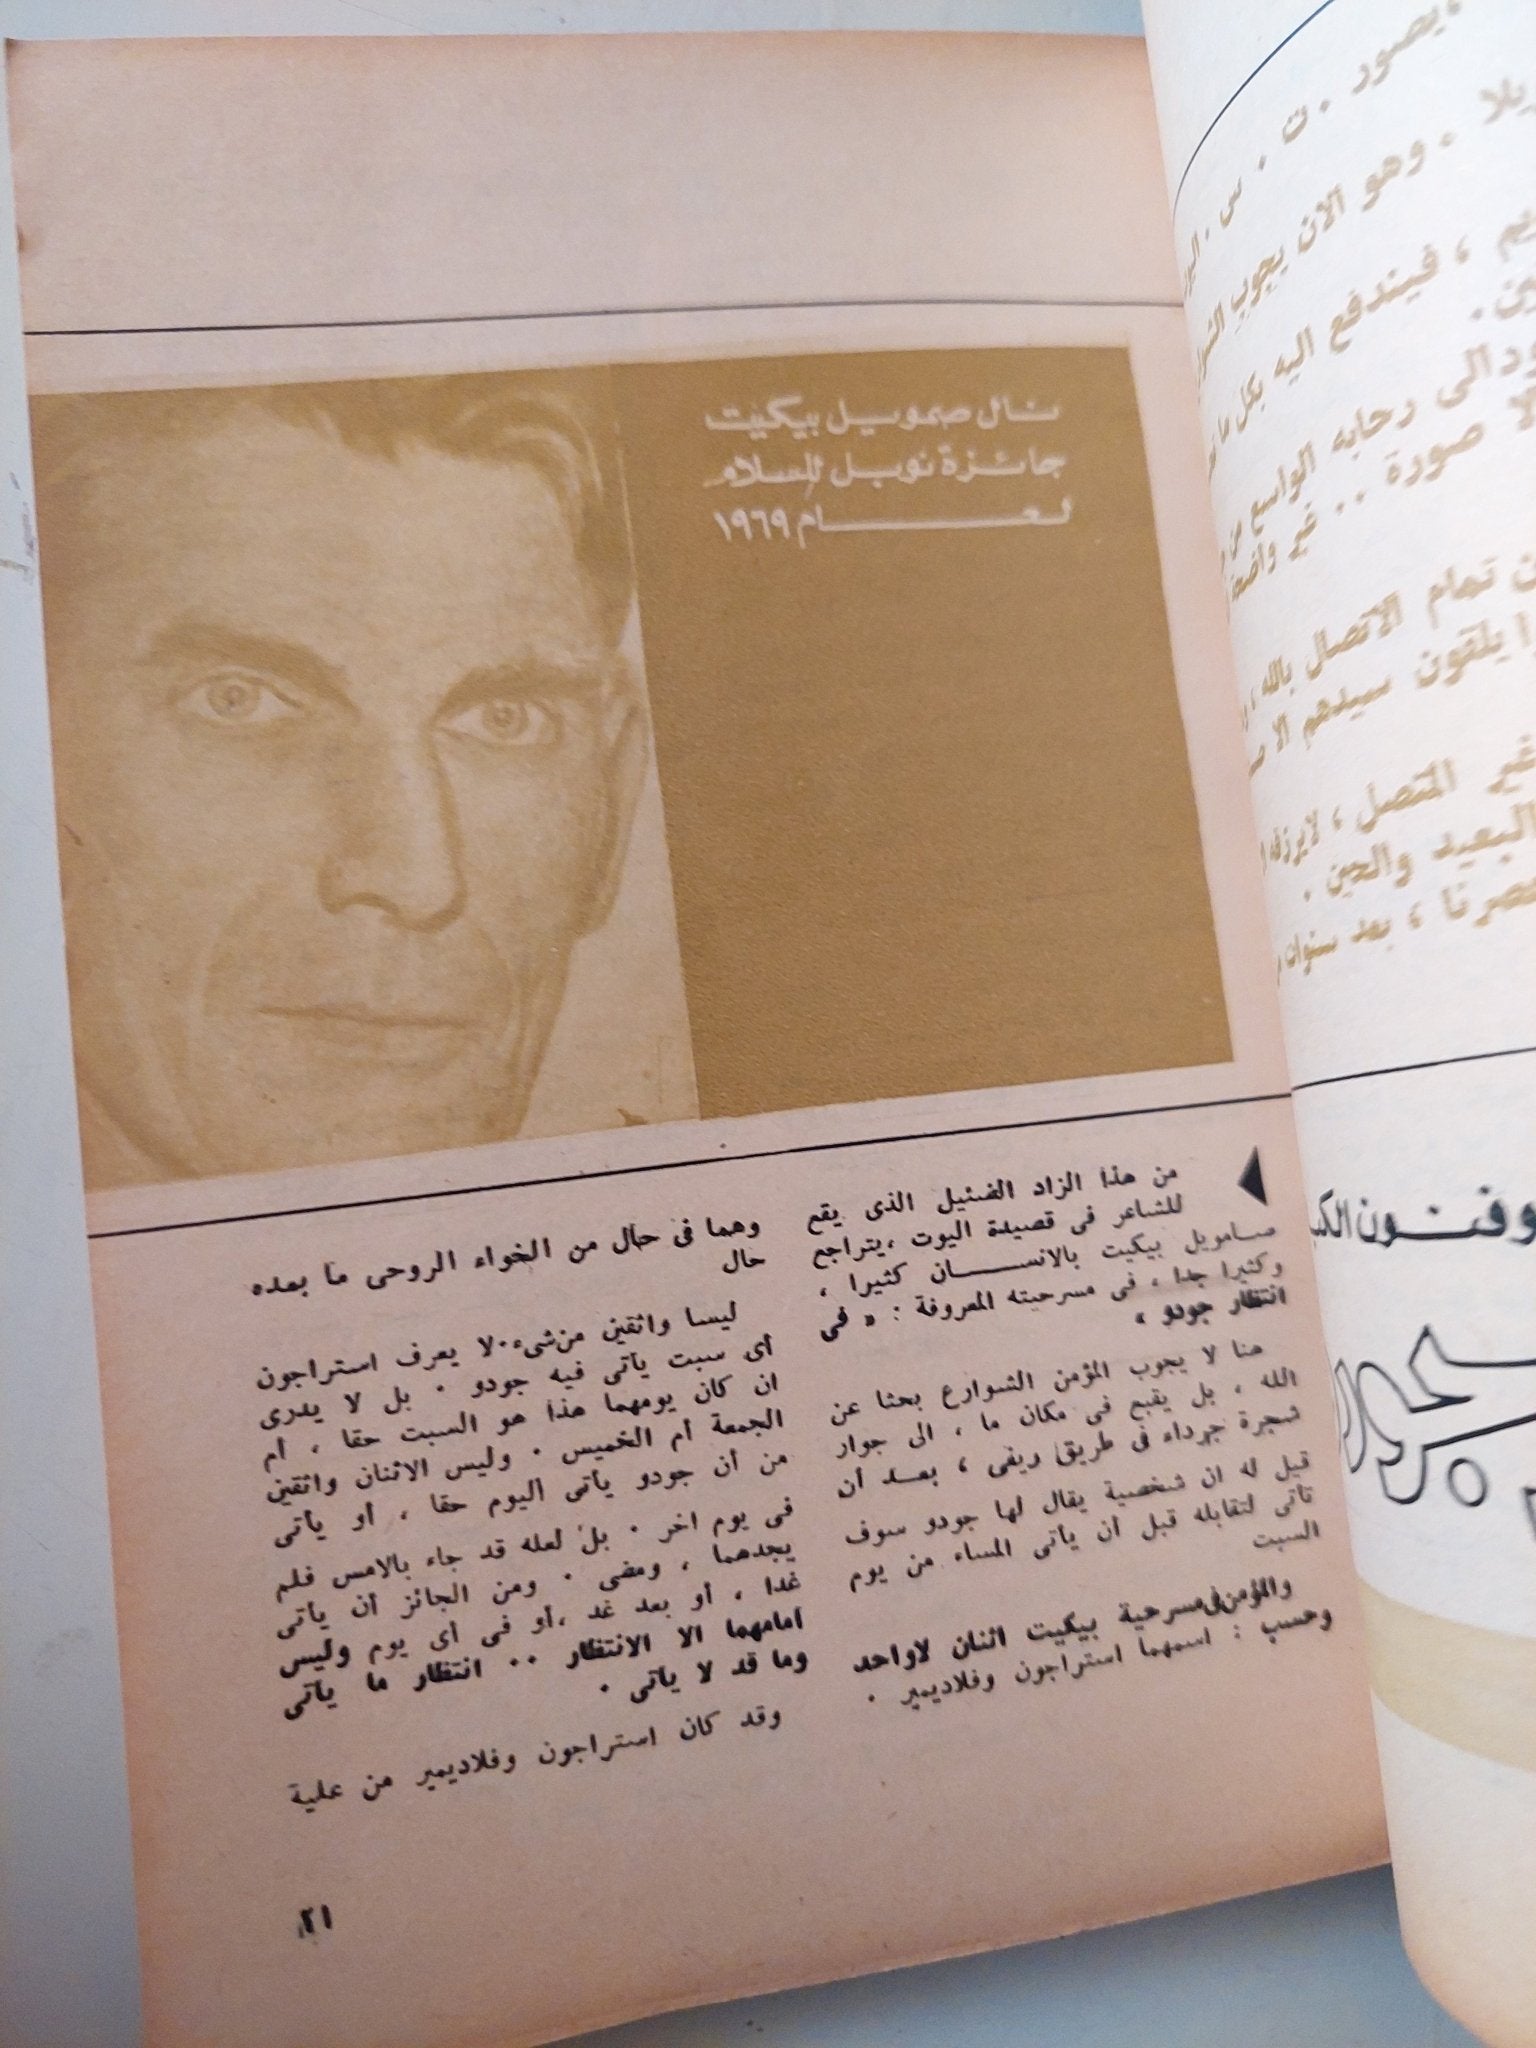 نال صمويل بيكيت
جائزة نوبل للسلام
لعام ١٩٦٩
من هذا الزاد الضئيل الذى يقع
للشاعر فى قصيدة اليوت ، يتراجع
صامويل بيكيت بالانسان كثيرا ،
وكثيرا جدا ، فى مسرحيته المعروفة : « فى
انتظار جودو »
هنا لا يجوب المؤمن الشوارع بحثا عن
الله ، بل يقبع فى مكان ما ، الى جوار
شجرة جرداء فى طريق ريفى ، بعد أن
قيل له ان شخصية يقال لها جودو سوف
تأتى لتقابله قبل أن يأتى المساء من يوم
السبت
والمؤمن فى مسرحية بيكيت اثنان لا واحد
وحسب : اسمهما استراجون وفلاديمير .
وهما فى حال من الخواء الروحى ما بعده
حال
ليسا واثقين من شىء . لا يعرف استراجون
أى سبت يأتى فيه جودو . بل لا يدرى
ان كان يومهما هذا هو السبت حقا ، أم
الجمعة أم الخميس . وليس الاثنان واثقين
من أن جودو يأتى اليوم حقا ، أو يأتى
فى يوم اخر . بل لعله قد جاء بالامس فلم
يجدهما ، ومضى . ومن الجائز أن يأتى
غدا ، أو بعد غد ، أو فى أى يوم وليس
أمامهما الا الانتظار .. انتظار ما يأتى
وما قد لا يأتى .
وقد كان استراجون وفلاديمير من علية
٢١
، يصور . ت . س . اليوت
، وهو الان يجوب
، فيندفع اليه بكل ما
الى رحابه الواسع من
لا صورة .. غير واضحة
تمام الاتصال بالله ،
يلقون سيدهم الا
غير المتصل ، لا
البعيد والحين .
عصرنا ، بعد سنوات
وفنون